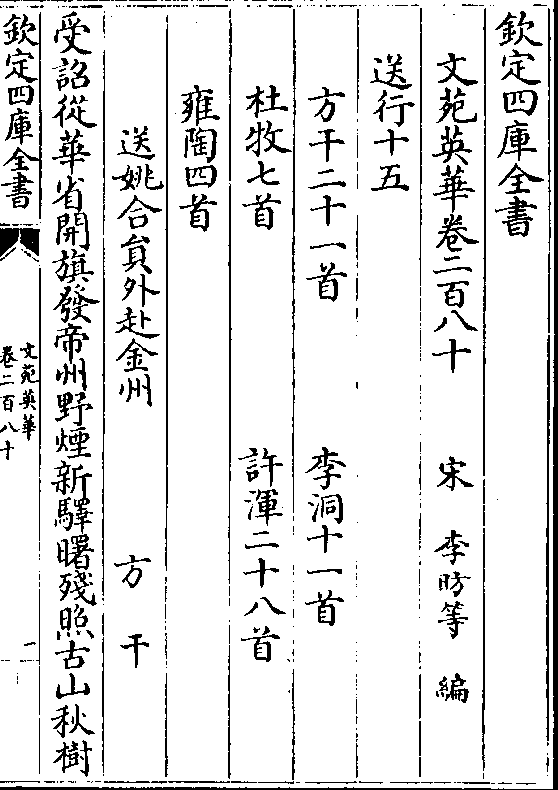 欽定四庫全書
文苑英華卷二百八十 宋 李昉等 編
送行十五
方干二十一首 李洞十一首
杜牧七首 許渾二十八首
雍陶四首
送姚合員外赴金州 方干
受詔從華省開旗發帝州野煙新驛曙殘照古山秋樹
欽定四庫全書
文苑英華
卷二百八十
一